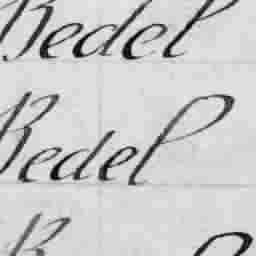 Bedel
Bedel
B